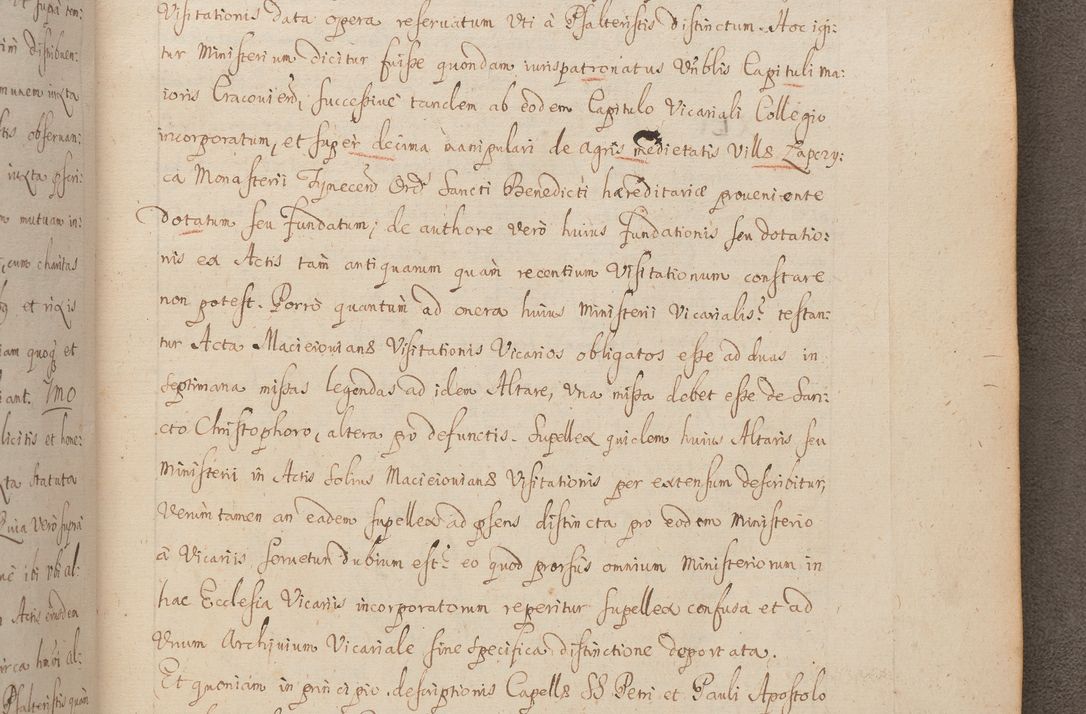 et supra tem:
rim distribuen:
munem iuxta
tis obseruan:
iuxta pscri:
n mutuam in:
, cum charitas
et rixis
iam quoq et
iant. Imo
licitis et hone:
xta statuta
Quia Vero supra
ibi Vbi al:
Actis eiusdem
circa huius al:
Psalteristis quam
Visitationis data opera reseruatum Vti à Psalteristis distinctum. Hoc igi:
tur Ministerium dicitur fuisse quondam iurispatronatus Vnblis Capituli ma:
ioris Cracouien, successiue tandem ab eodem Capitulo Vicariali Collegio
incorporatum, et super decima manipulari de agris medietatis Villæ Zaperzy:
ca Monasterii Tynecen Ord: Sancti Benedicti hæreditariæ proueniente
dotatum seu Fundatum; de authore verò huius Fundationis seu dotatio:
nis ex Actis tam antiquarum quàm recentium Visitationum constare
non potest. Porro quantum ad onera huius Ministerii Vicarialis? testan:
tur Acta Macieiouianæ Visitationis Vicarios obligatos esse ad duas in
septimana missas legendas ad idem Altare, Vna missa debet esse de San:
cto Christophoro, altera pro defunctis. Supellex quidem huius Altaris seu
Ministerii in Actis Solius Macieiouianæ Visitationis per extensum describitur,
Verumtamen an eadem supellex ad psens distincta pro eodem Ministerio
à Vicariis seruetur dubium est? eo quod prorsus omnium Ministeriorum in
hac Ecclesia Vicariis incorporatorum reperitur supellex confusa et ad
Vnum Archiuium Vicariale sine specifica distinctione deportata.
Et quoniam in principio descriptionis Capellæ SS Petri et Pauli Apostolo